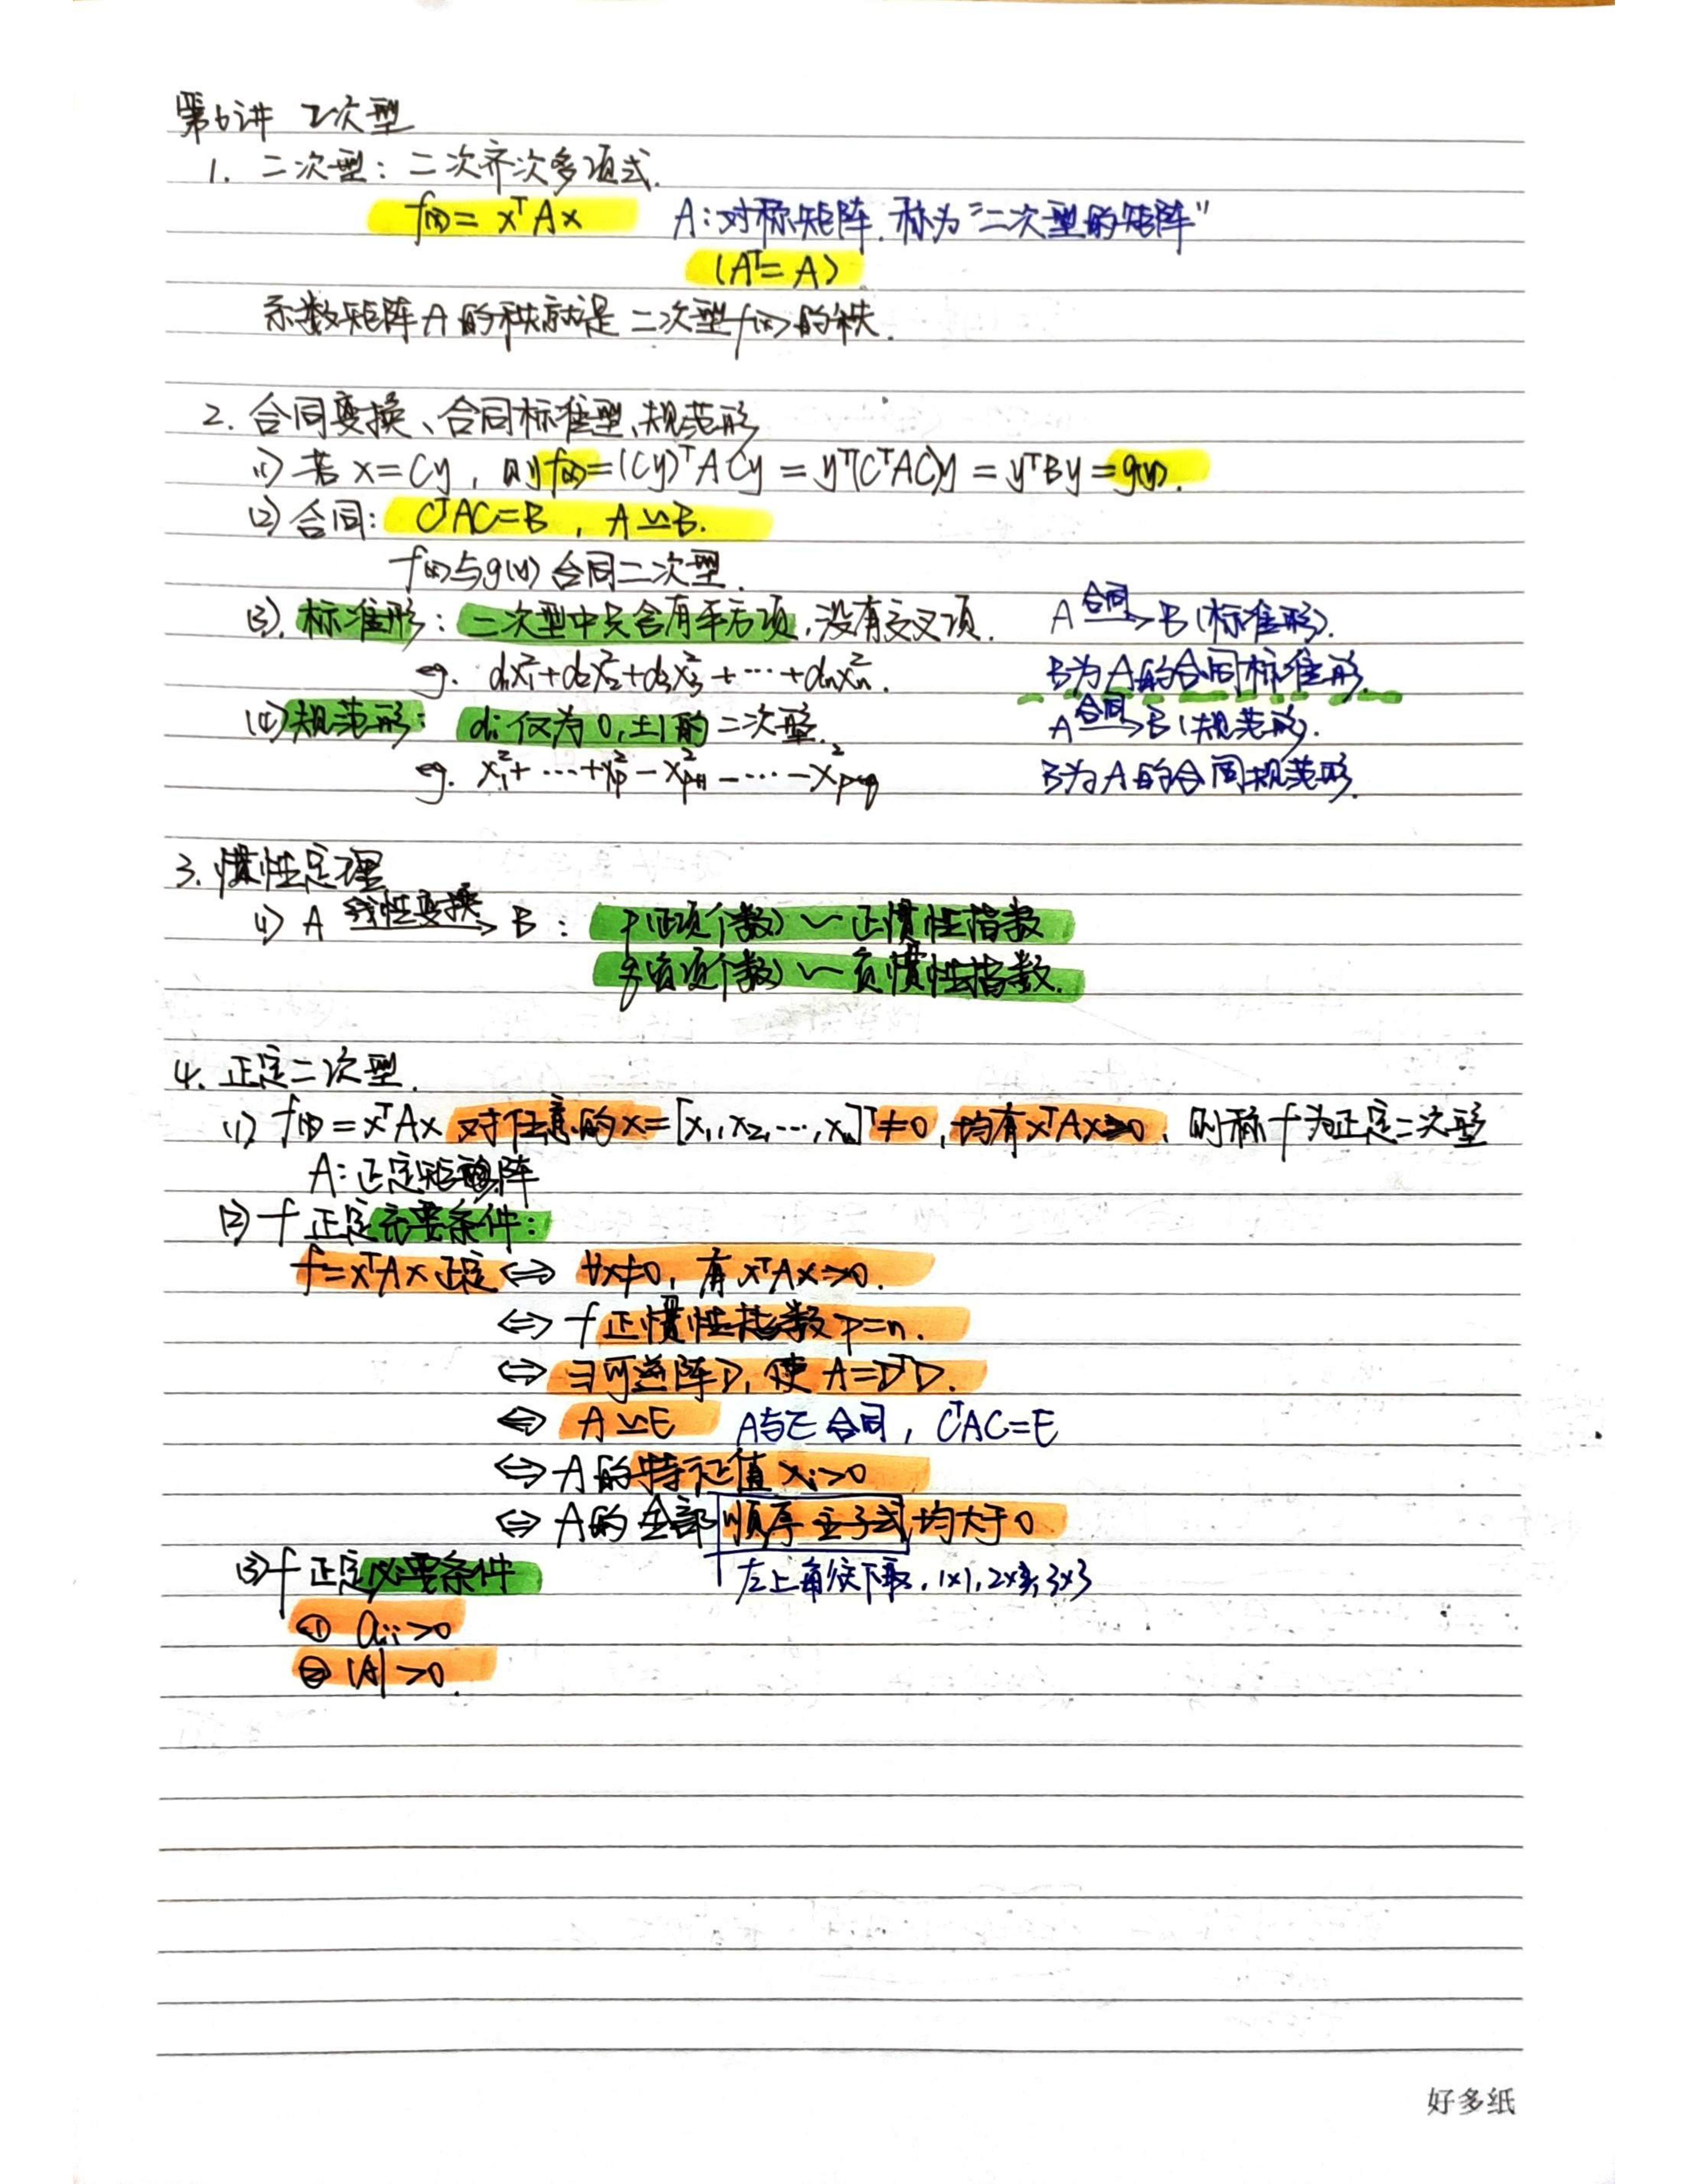 第6讲 二次型
1. 二次型：二次齐次多项式.
f(x)= xᵀAx A:对称矩阵. 称为"二次型的矩阵"
(Aᵀ= A)
系数矩阵A的秩就是二次型f(x)的秩.
2. 合同变换、合同标准型、规范形
(1) 若 x=Cy, 则f(x)=(Cy)ᵀACy = yᵀ(CᵀAC)y = yᵀBy = g(y).
(2) 合同: CᵀAC=B , A≃B.
f(x)与g(y) 合同二次型.
(3). 标准形: 二次型中只含有平方项,没有交叉项. A 合同→ B (标准形).
eg. d₁x₁²+d₂x₂²+d₃x₃²+…+dₙxₙ². B为A的合同标准形.
(4)规范形: dᵢ仅为0,±1的二次型. A 合同→ B (规范形).
eg. x₁²+…+xₚ²-xₚ₊₁²-…-xₚ₊q² B为A的合同规范形.
3. 惯性定理
(1) A 线性变换→ B : p(正项个数) ~ 正惯性指数
q(负项个数) ~ 负惯性指数.
4. 正定二次型.
(1) f(x)=xᵀAx 对任意的x=[x₁,x₂,…,xₙ]ᵀ≠0, 均有xᵀAx>0, 则称f为正定二次型
A: 正定矩阵
(2) f 正定充要条件:
f=xᵀAx 正定 ⇔ ∀x≠0, 有 xᵀAx>0.
⇔ f 正惯性指数 p=n.
⇔ ∃可逆阵D, 使 A=DᵀD.
⇔ A≃E A与E合同, CᵀAC=E
⇔ A的特征值 λᵢ>0
⇔ A的全部顺序主子式均大于0
(3) f 正定必要条件 左上角往下取, 1×1, 2×2, 3×3
① aᵢᵢ>0
② |A|>0.
好多纸